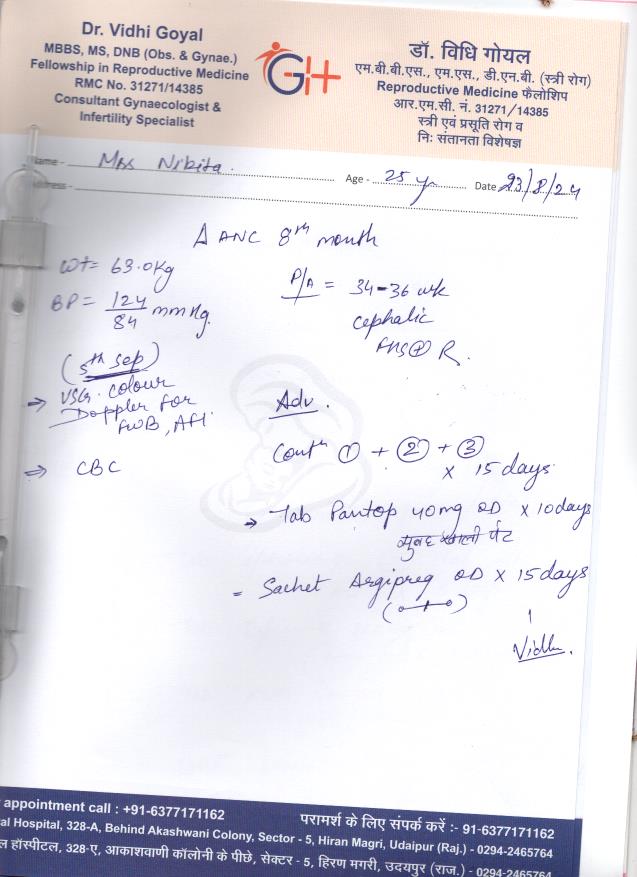 Dr. Vidhi Goyal
MBBS, MS, DNB (Obs. & Gynae.)
Fellowship in Reproductive Medicine
RMC No. 31271/14385
Consultant Gynaecologist &
Infertility Specialist
GH
डॉ. विधि गोयल
एम.बी.बी.एस., एम.एस., डी.एन.बी. (स्त्री रोग)
Reproductive Medicine फैलोशिप
आर.एम.सी. नं. 31271/14385
स्त्री एवं प्रसूति रोग व
निः संतानता विशेषज्ञ
Name - Mrs Nikita. Age - 25 yr Date 23/8/24
Address -
Δ ANC 8th month
Wt = 63.0kg
BP = 124/84 mmHg.
P/A = 34-36 wk
cephalic
FHS⊕ R.
(5th Sep)
→ USG. colour
Doppler for
FWB, AFI.
⇒ CBC
Adv.
Contn ① + ② + ③
x 15 days
→ Tab Pantop 40mg OD x 10days
सुबह खाली पेट
= Sachet Argipreg OD x 15days
Vidhi.
appointment call : +91-6377171162
परामर्श के लिए संपर्क करें :- 91-6377171162
al Hospital, 328-A, Behind Akashwani Colony, Sector - 5, Hiran Magri, Udaipur (Raj.) - 0294-2465764
ल हॉस्पीटल, 328-ए, आकाशवाणी कॉलोनी के पीछे, सेक्टर - 5, हिरण मगरी, उदयपुर (राज.) - 0294-2465764